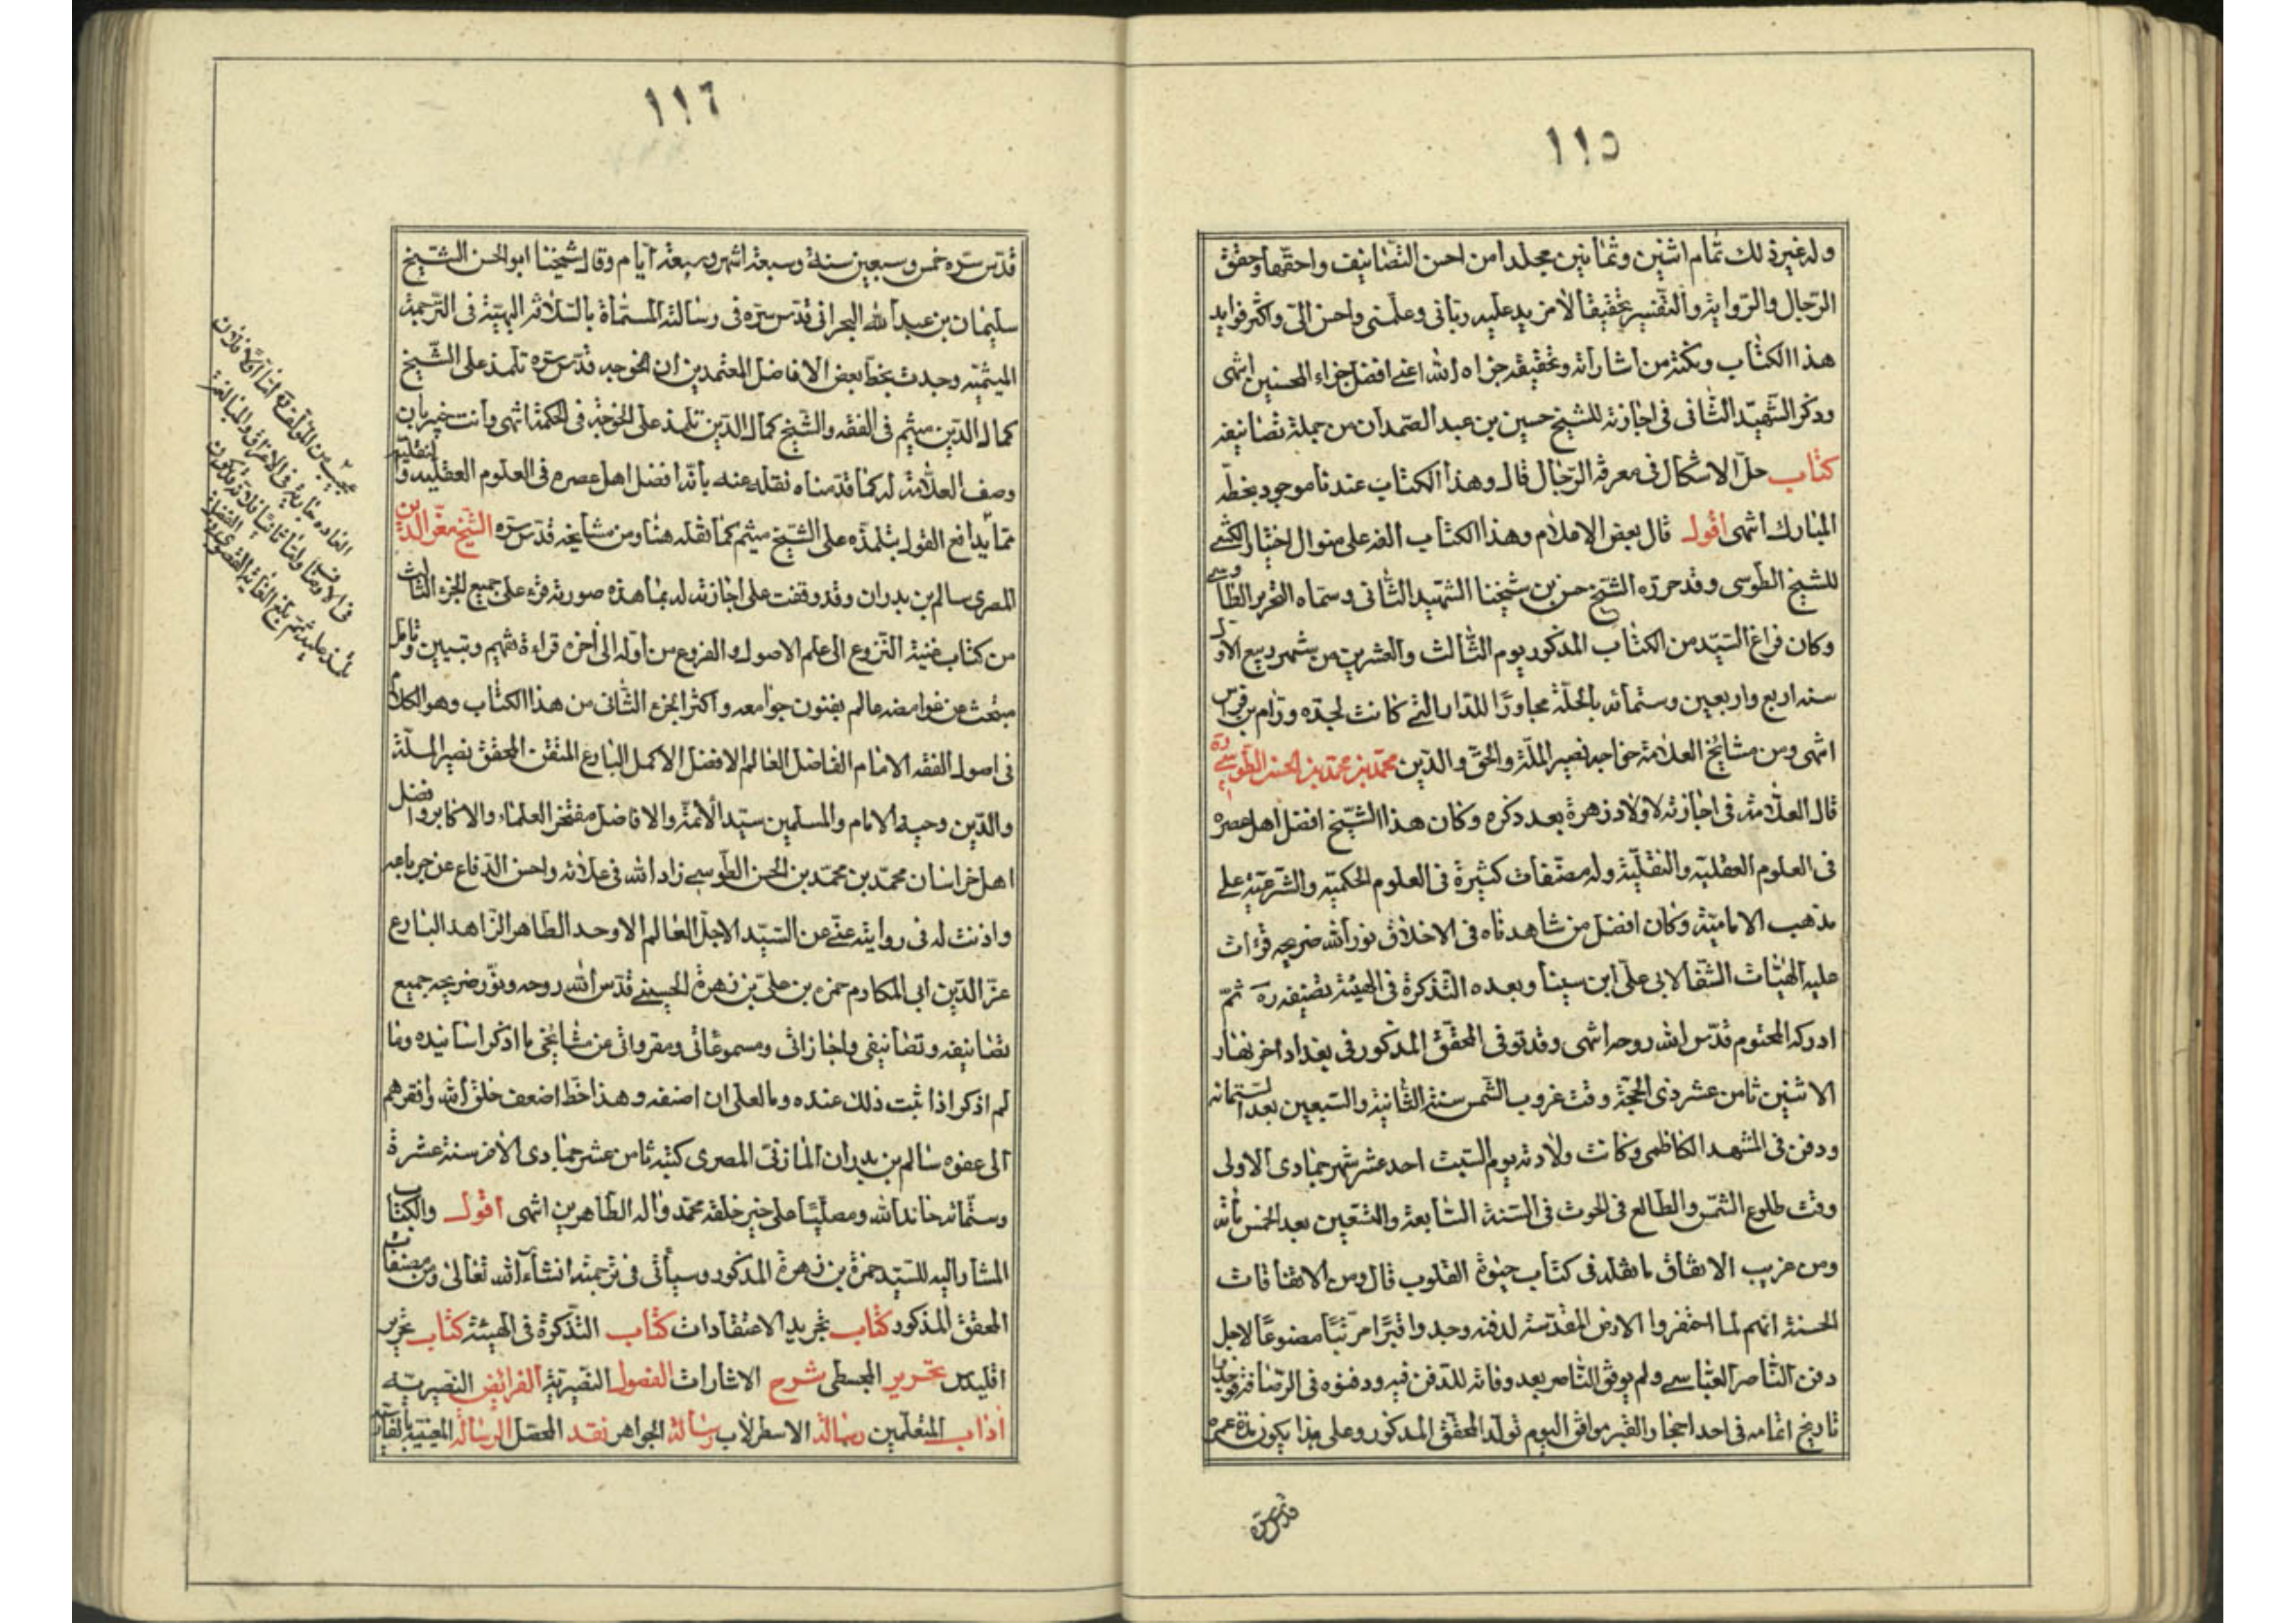 ١١٥
وله غير ذلك تمام اثنين وثمانين مجلدا من احسن التصانيف واحقها وحقق
الرجال والرواية والتفسير تحقيقا لا مزيد عليه رباني وعلمني واحسن الي واكثر فوايد
هذا الكتاب ونكته من اشاراته وتحقيقه جزاه الله اعني افضل جزاء المحسنين انتهى
وذكر الشهيد الثاني في اجازته للشيخ حسين بن عبد الصمد ان من جملة تصانيفه
كتاب حل الاشكال في معرفة الرجال قال وهذا الكتاب عندنا موجود بخطه
المبارك انتهى اقول قال بعض الاعلام وهذا الكتاب الفه على منوال اختيار الكشي
للشيخ الطوسي وقد حرره الشيخ حسن بن شيخنا الشهيد الثاني وسماه التحرير الطاوسي
وكان فراغ السيد من الكتاب المذكور يوم الثالث والعشرين من شهر ربيع الاول
سنه اربع واربعين وستمائه بالحلة مجاورا للدار التي كانت لجده ورام بن
انتهى ومن مشايخ العلامة خواجه نصير الملة والحق والدين محمد بن محمد بن الحسن الطوسي ره
قال العلامة في اجازته لاولاد زهرة بعد ذكره وكان هذا الشيخ افضل اهل عصره
في العلوم العقلية والنقلية وله مصنفات كثيرة في العلوم الحكمية والشرعية على
مذهب الامامية وكان افضل من شاهدناه في الاخلاق نور الله ضريحه قرات
عليه الهيات الشفا لابي علي ابن سينا وبعده التذكرة في الهيئة تصنيفه ره ثم
ادركه المحتوم قدس الله روحه انتهى وقد توفي المحقق المذكور في بغداد اخر نهار
الاثنين ثامن عشر ذي الحجة وقت غروب الشمس سنة الثانية والسبعين بعد الستمائه
ودفن في المشهد الكاظمي وكانت ولادته يوم السبت احد عشر شهر جمادى الاولى
وقت طلوع الشمس والطالع في الحوت في السنة السابعة والتسعين بعد الخمس مائة
ومن غريب الاتفاق ما نقله في كتاب حيوة القلوب قال ومن الاتفاقات
الحسنة انهم لما احتفروا الارض المقدسة لدفنه وجدوا قبرا مرتبا مصنوعا لاجل
دفن الناصر العباسي ولم يوفق الناصر بعد وفاته للدفن فيه ودفنوه في الرصافة فوجدوا
تاريخ اتمامه في احد احجار القبر موافق اليوم تولد المحقق المذكور وعلى هذا يكون مدة عمره
قدس سره
١١٦
قدس سره خمس وسبعين سنة وسبعة اشهر وسبعة ايام وقال شيخنا ابو الحسن الشيخ
سليمان بن عبد الله البحراني قدس سره في رسالته المسماة بالسلافة البهية في الترجمة
الميثمية وجدت بخط بعض الافاضل المعتمدين ان الخوجه قدس سره تلمذ على الشيخ
كمال الدين ميثم في الفقه والشيخ كمال الدين تلمذ على الخوجة في الحكمة انتهى وانت خبير بان
وصف العلامة له كما قدمناه نقله عنه بانه افضل اهل عصره في العلوم العقليه والنقليه
مما يدافع القول بتلمذه على الشيخ ميثم كما نقله هنا ومن مشايخه قدس سره الشيخ معز الدين
المصري سالم بن بدران وقد وقفت على اجازته له بما هذه صورته قرء على جميع الجزء الثالث
من كتاب غنية النزوع الى علم الاصول والفروع من اوله الى اخره قراءة تفهيم وتبيين وتامل
مبتحث عن غوامضه عالم بفنون جوامعه واكثر الجزء الثاني من هذا الكتاب وهو الكلام
في اصول الفقه الامام الفاضل العالم الافضل الاكمل البارع المتقن المحقق نصير الملة
والدين وجيه الامام والمسلمين سيد الائمة والافاضل مفتخر العلماء والاكابر وافضل
اهل خراسان محمد بن محمد بن الحسن الطوسي زاد الله في علائه واحسن الدفاع عن حوبائه
واذنت له في روايته عني عن السيد الاجل العالم الاوحد الطاهر الزاهد البارع
عز الدين ابي المكارم حمزه بن علي بن زهرة الحسيني قدس الله روحه ونور ضريحه جميع
تصانيفه وتصانيفي واجازاتي ومسموعاتي ومقرواتي من مشايخي ما اذكر اسانيده وما
لم اذكر اذا ثبت ذلك عنده وما لعلي ان اصنفه وهذا خط اضعف خلق الله وافقرهم
الى عفوه سالم بن بدران المازني المصري كتبه ثامن عشر جمادى الاخر سنة عشرة
وستمائه حامدا لله ومصليا على خير خلقه محمد واله الطاهرين انتهى اقول والكتاب
المشار اليه للسيد حمزة بن زهرة المذكور وسياتي في ترجمته انشاء الله تعالى ومن مصنفات
المحقق المذكور كتاب تجريد الاعتقادات كتاب التذكرة في الهيئة كتاب تحرير
اقليدس تحرير المجسطي شرح الاشارات الفصول النصيرية الفرائض النصيريه
اداب المتعلمين رسالة الاسطرلاب رسالة الجواهر نقد المحصل الرسالة المعينية بالفارسية
عجيب من المؤلف
العاده جارية في الاغراق والمبالغة